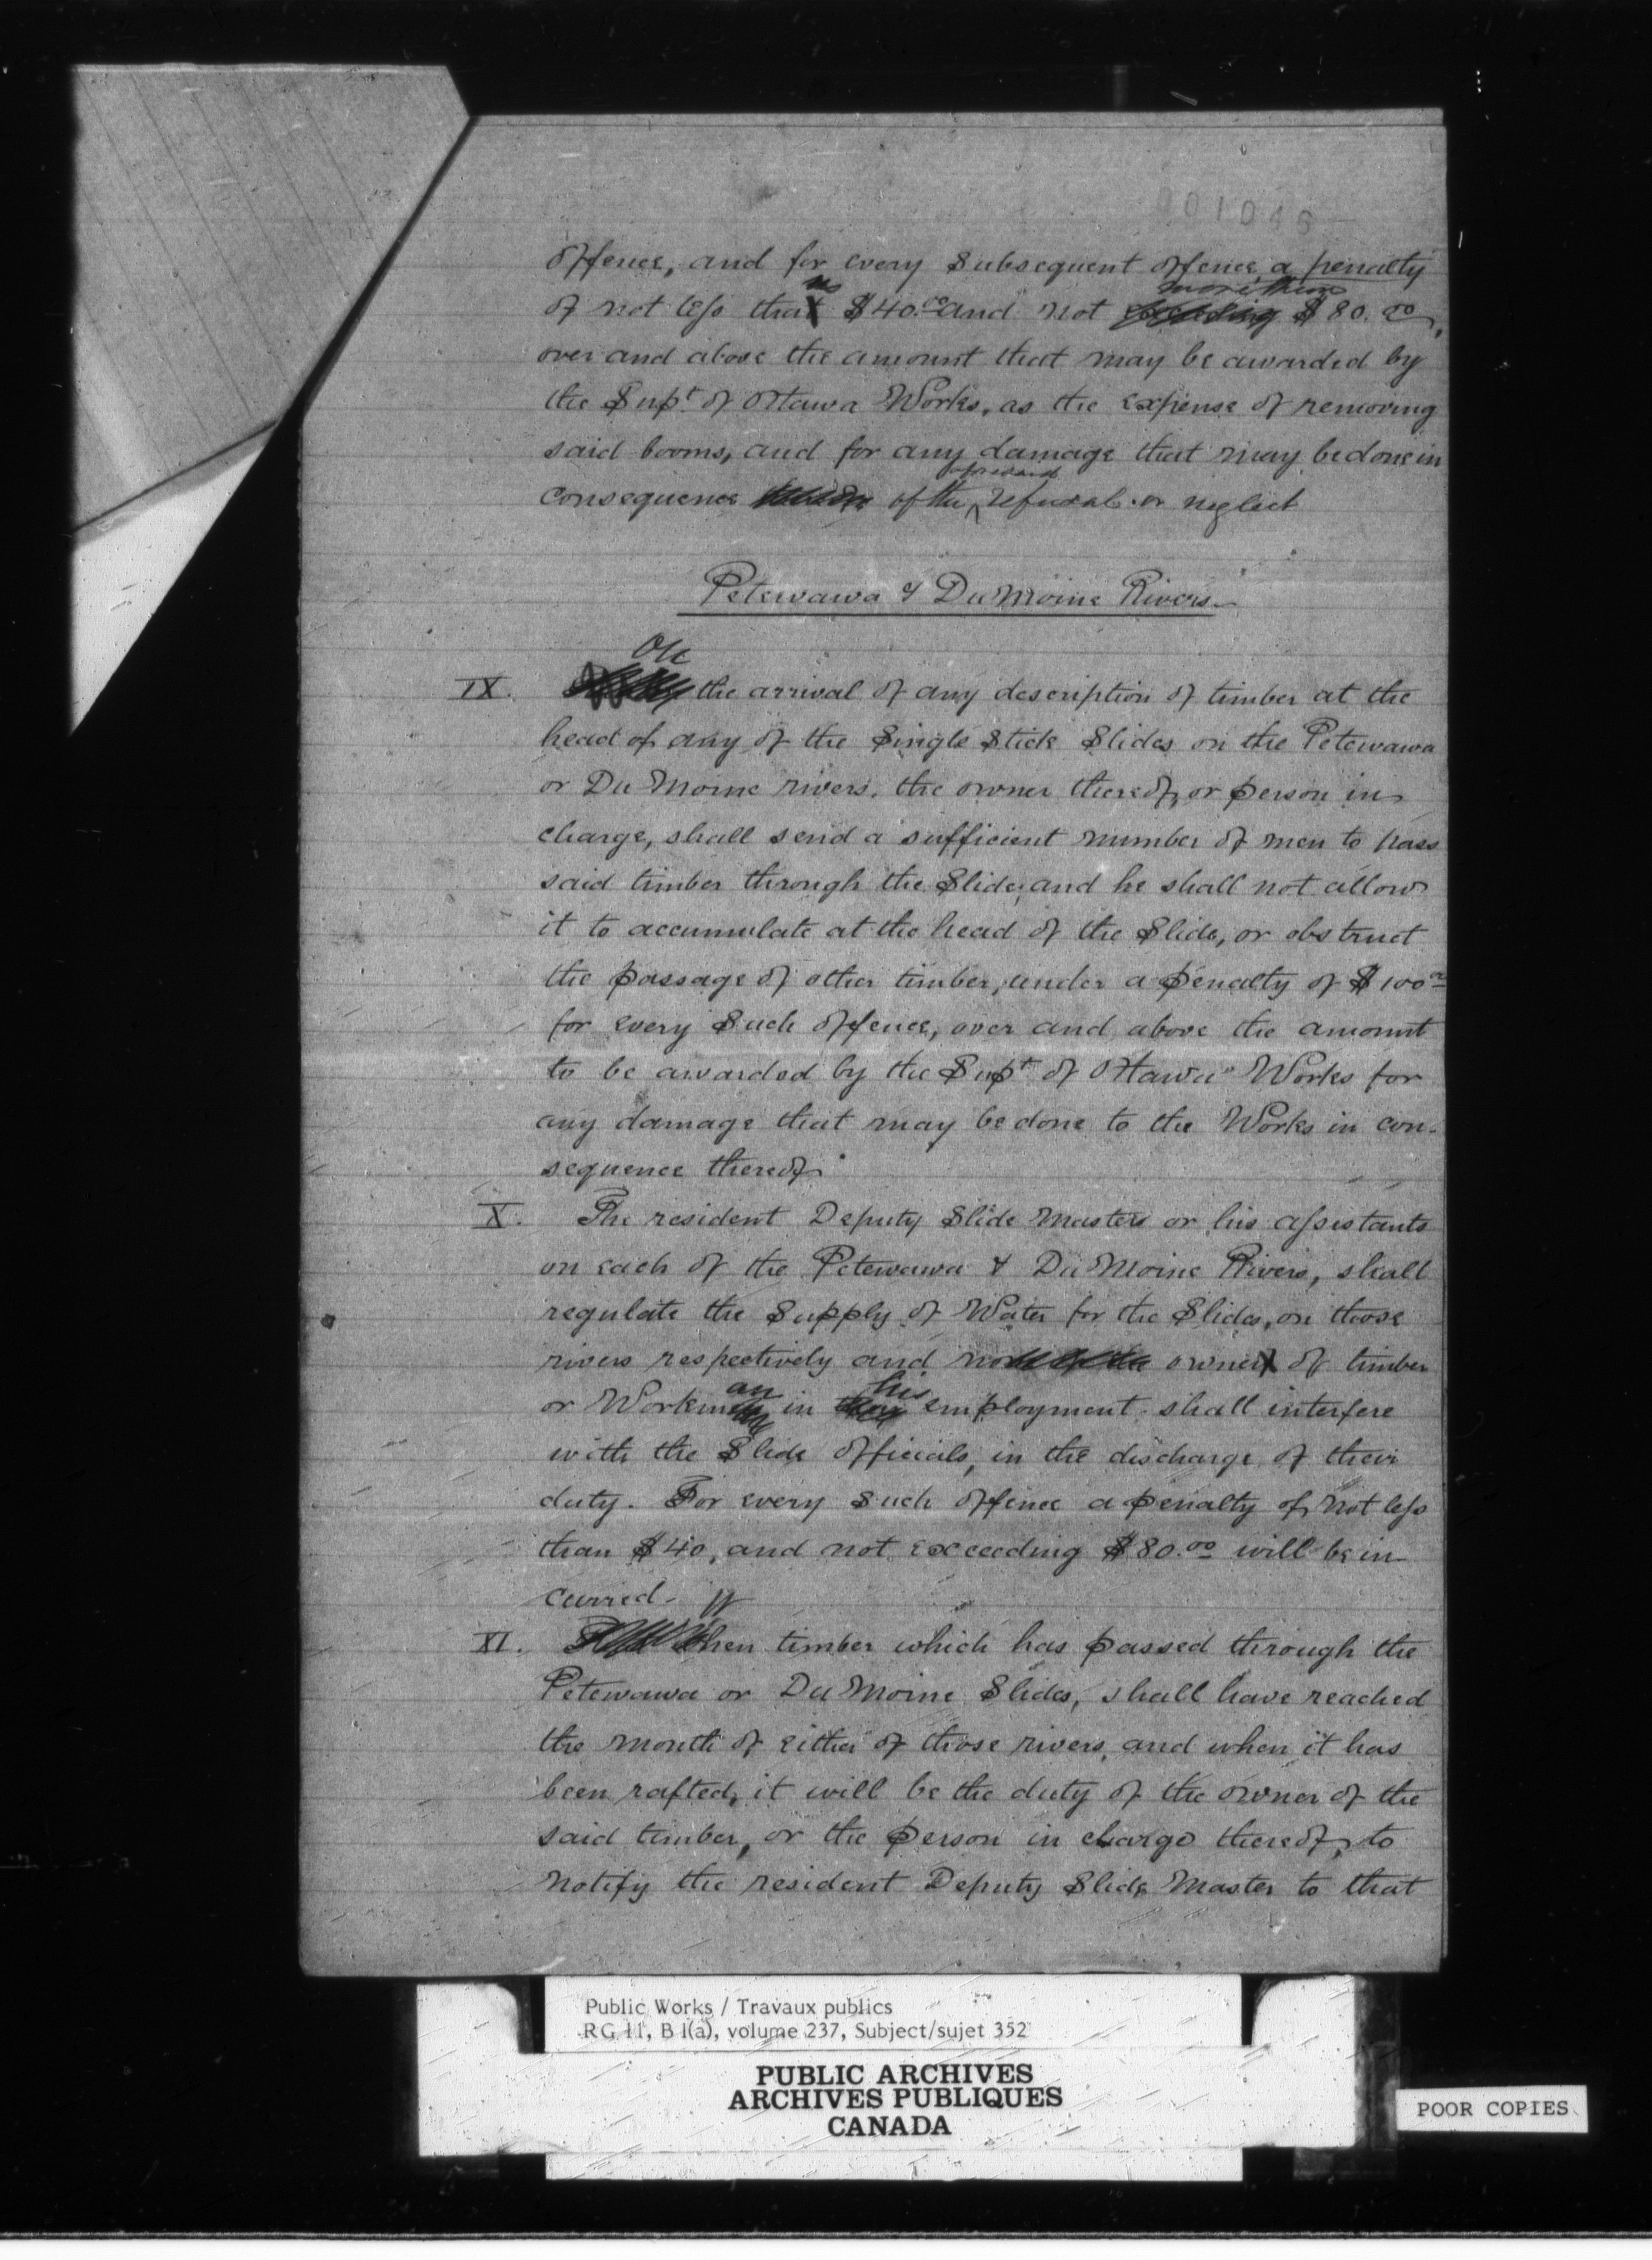 001046
offence, and for every Subsequent offence a penalty
of not less than $40.00 and not more than $80.00,
over and above the amount that may be awarded by
the Supt of Ottawa Works, as the expense of removing
said booms, and for any damage that may be done in
consequence of the aforesaid refusal or neglect
Petewawa & Du Moine Rivers
IX. On the arrival of any description of timber at the
head of any of the Single Stick Slides on the Petewawa
or Du Moine rivers, the owner thereof, or person in
charge, shall send a sufficient number of men to pass
said timber through the Slide, and he shall not allow
it to accumulate at the head of the Slide, or obstruct
the passage of other timber, under a penalty of $100.00
for every Such offence, over and above the amount
to be awarded by the Supt of Ottawa Works for
any damage that may be done to the Works in con-
sequence thereof.
X. The resident Deputy Slide Masters or his assistants
on each of the Petewawa & Du Moine Rivers, shall
regulate the Supply of Water for the Slides, on those
rivers respectively and no owner of timber
or Workman in his employment shall interfere
with the Slide officials, in the discharge of their
duty. For every Such offence a penalty of not less
than $40, and not exceeding $80.00 will be in-
curred.
XI. When timber which has passed through the
Petewawa or Du Moine Slides, shall have reached
the mouth of either of those rivers, and when it has
been rafted, it will be the duty of the owner of the
said timber, or the person in charge thereof, to
notify the resident Deputy Slide Master to that
Public Works / Travaux publics
RG 11, B 1(a), volume 237, Subject/sujet 352
PUBLIC ARCHIVES
ARCHIVES PUBLIQUES
CANADA
POOR COPIES